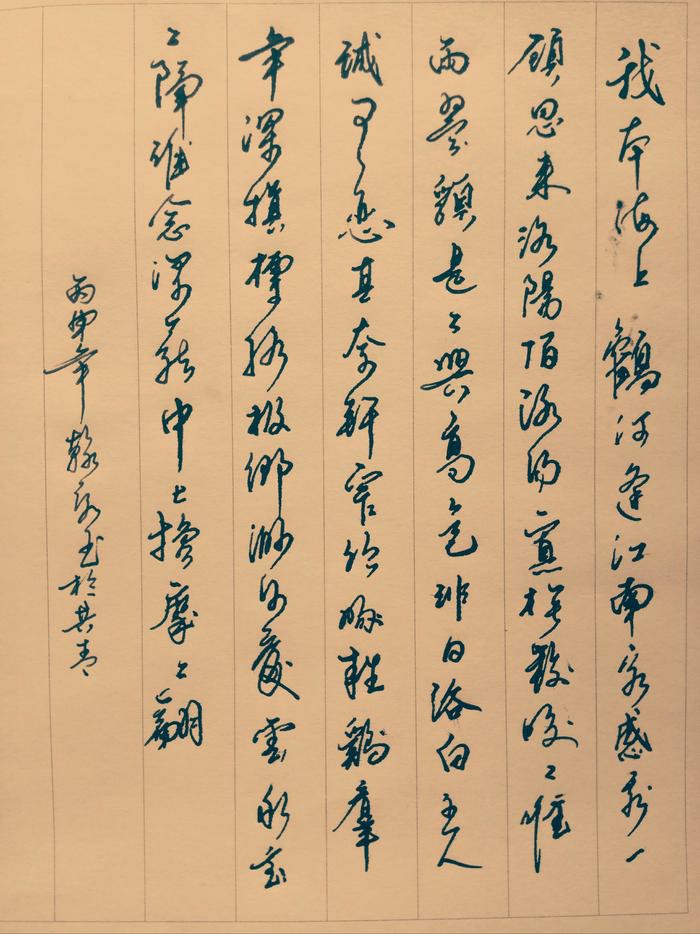 我本海上鶴逢江南客感一
顧恩来洛陽陌洛陽寡族類皎々惟
兩翼貌是天與高色非日浴白主人
誠可戀其奈軒窄飲啄雜鷄羣
年深損標格故鄉渺何處雲水重
々隔誰念深籠中七換摩天翮
丙申年書於其青